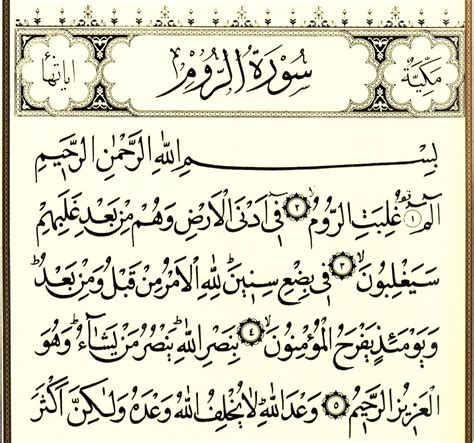 مَكِّيَّة سُورَةُ الرُّومِ اٰيَاتُهَا
بِسْمِ اللّٰهِ الرَّحْمٰنِ الرَّحِيمِ
الٓمٓ ﴿١﴾ غُلِبَتِ الرُّومُ ﴿٢﴾ فٖٓي اَدْنَى الْاَرْضِ وَهُمْ مِنْ بَعْدِ غَلَبِهِمْ
سَيَغْلِبُونَ ﴿٣﴾ فٖي بِضْعِ سِنٖينَ لِلّٰهِ الْاَمْرُ مِنْ قَبْلُ وَمِنْ بَعْدُ
وَيَوْمَئِذٍ يَفْرَحُ الْمُؤْمِنُونَ ﴿٤﴾ بِنَصْرِ اللّٰهِ يَنْصُرُ مَنْ يَشَٓاءُ وَهُوَ
الْعَزٖيزُ الرَّحٖيمُ ﴿٥﴾ وَعْدَ اللّٰهِ لَا يُخْلِفُ اللّٰهُ وَعْدَهُ وَلٰكِنَّ اَكْثَرَ